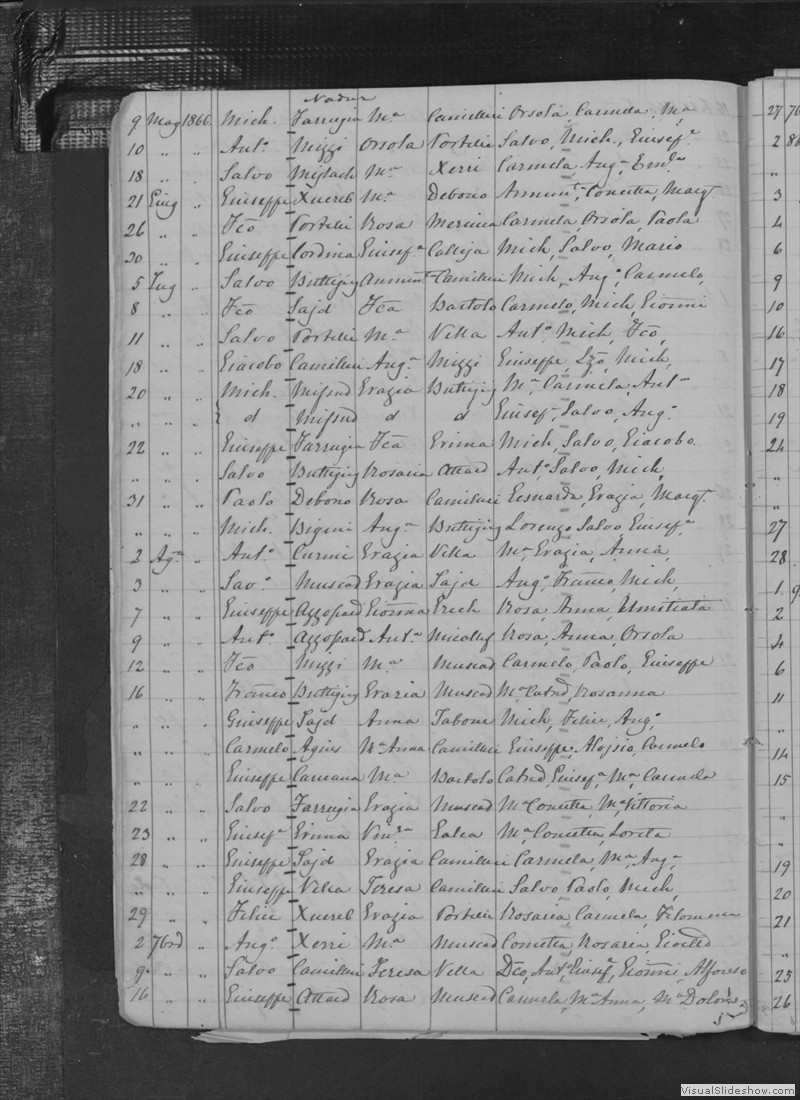 Nadur
9 Mag 1866. Mich. Farrugia Mª Camilleri Orsola, Carmela, Mª
10 " " Antº Mizzi Orsola Portelli Salvo, Mich., Giusefª
18 " " Salvo Mifsud Mª Xerri Carmela, Augª
21 Giug " Giuseppe Xuereb Mª Debono Concetta, Margt
26 " " Fco Portelli Rosa Carmela, Orsola, Paola
30 " Giuseppe Cordina Giusefª Calleja Mich, Salvo, Mario
5 Lug " Salvo Buttigieg Camilleri Mich, Augº, Carmelo,
8 " " Fco Sajd Fca Bartolo Carmelo, Mich, Giovni
11 " " Salvo Portelli Mª Vella Antº, Mich, Fco,
18 " " Giacobo Camilleri Augª Mizzi Giuseppe, Lzo, Mich,
20 " " Mich. Mifsud Grazia Buttigieg Mª Carmela, Antª
" " " d Mifsud d d Giusefª, Salvo, Augº
22 " " Giuseppe Farrugia Fca Grima Mich, Salvo, Giacobo.
" " " Salvo Buttigieg Rosaria Attard Antº, Salvo, Mich,
31 " " Paolo Debono Rosa Camilleri Grazia, Margt.
" " " Mich. Augª Buttigieg Lorenzo Salvo Giusefª
2 Agº " Antº Curmi Grazia Vella Mª Grazia, Anna,
3 " " Savº Muscad Grazia Sajd Augº, Franco, Mich,
7 " " Giuseppe Azzopard Giovnna Grech Rosa, Anna,
9 " " Antº Azzopard Antª Micallef Rosa, Anna, Orsola
12 " " Fco Mizzi Mª Muscad Carmelo, Paolo, Giuseppe
16 " " Franco Buttigieg Grazia Muscad Mª Catrd, Rosanna
" " " Giuseppe Sajd Anna Tabone Mich, Felice, Augº,
" " " Carmelo Agius Mª Anna Camilleri Giuseppe, Alojsio, Carmelo
" " " Giuseppe Caruana Mª Bartolo Catrd, Giusefª, Mª, Carmela
22 " " Salvo Farrugia Grazia Muscad Mª Concetta, Mª Vittoria
23 " " Grima Galea Mª Concetta, Loreta
28 " " Giuseppe Sajd Grazia Camilleri Carmela, Mª, Augª
" " " Giuseppe Vella Teresa Camilleri Salvo Paolo, Mich,
29 " " Felice Xuereb Grazia Portelli Rosaria, Carmela, Filomena
2 7bre " Augº Xerri Mª Muscad Concetta, Rosaria,
9 " " Salvo Camilleri Teresa Vella Dco, Antº, Giusef, Giovni, Alfonso
16 " " Giuseppe Attard Rosa Muscad Carmela, Mª Anna, Mª Dolores
27
2
"
3
4
6
9
10
16
17
18
19
24
"
"
27
28
1
2
4
6
11
"
14
15
"
"
19
20
21
"
25
26
VisualSlideshow.com